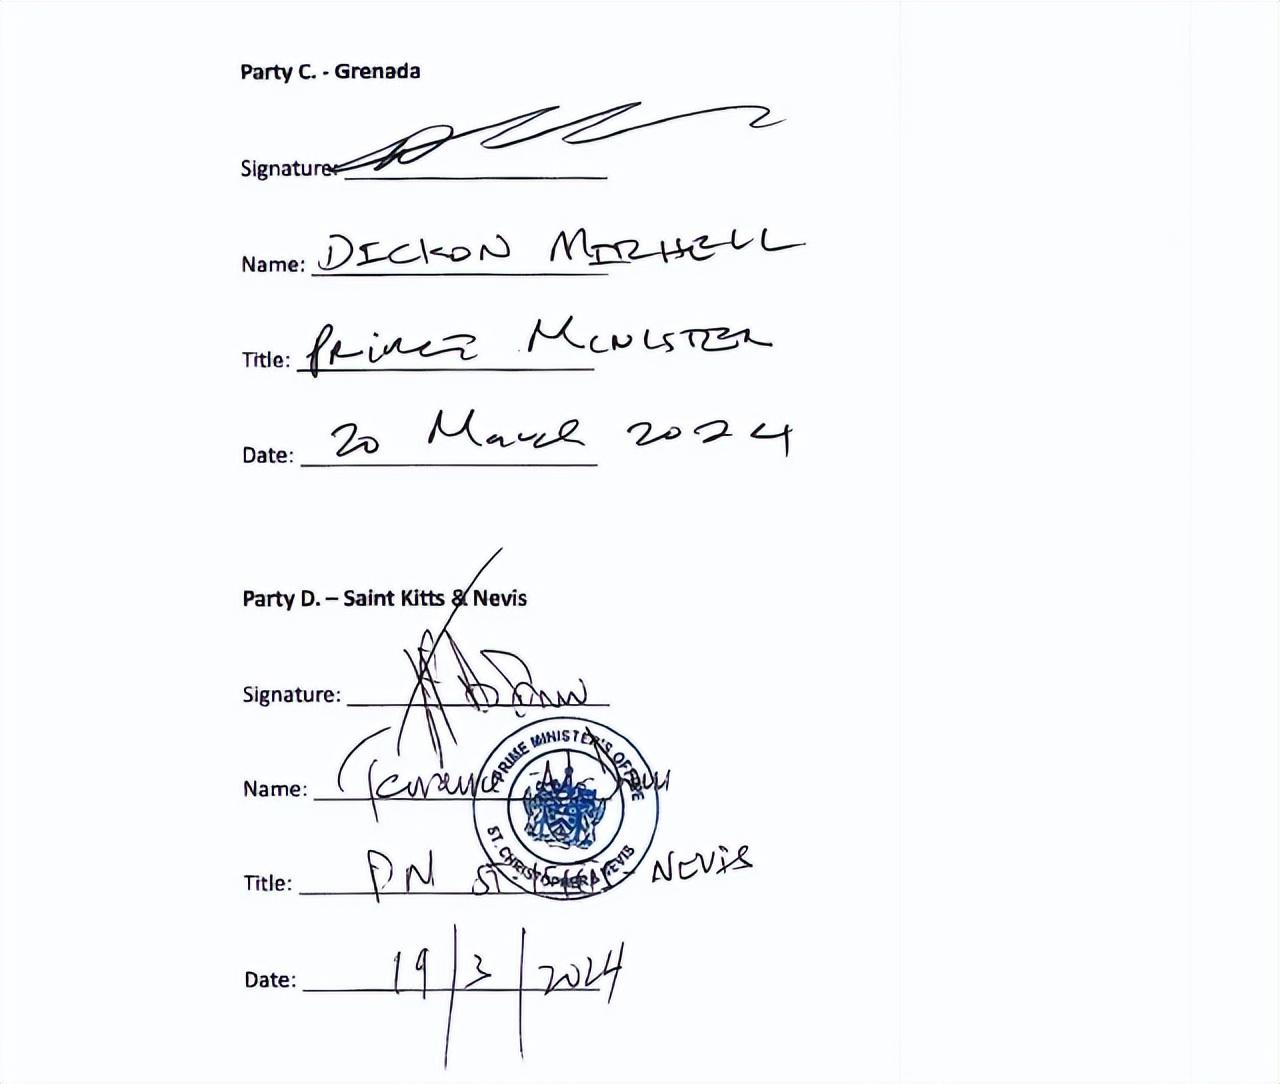 Party C. - Grenada
Signature:
Name: DICKON MITCHELL
Title: PRIME MINISTER
Date: 20 March 2024
Party D. – Saint Kitts & Nevis
Signature:
Name: Terrance
PRIME MINISTER'S OFFICE
Title: PM ST. NEVIS
ST. CHRISTOPHER & NEVIS
Date: 19/3/2024